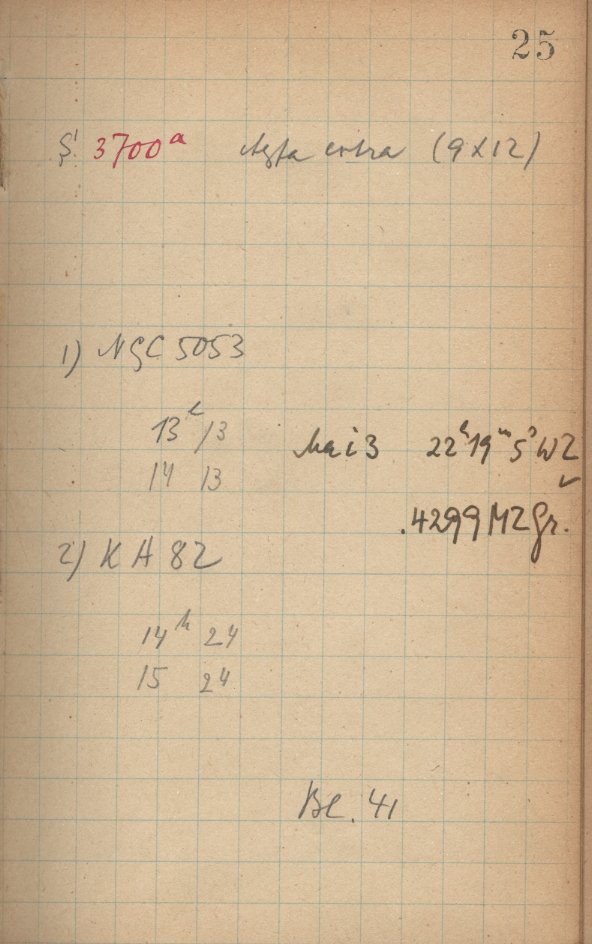 25
S 3700ª Agfa extra (9x12)
1) NGC 5053
13ʰ 13
14 13
Mai 3 22ʰ19ᵐ5ˢ WZ
.4299 MZGr.
2) KA 82
14ʰ 24
15 24
Be. 41